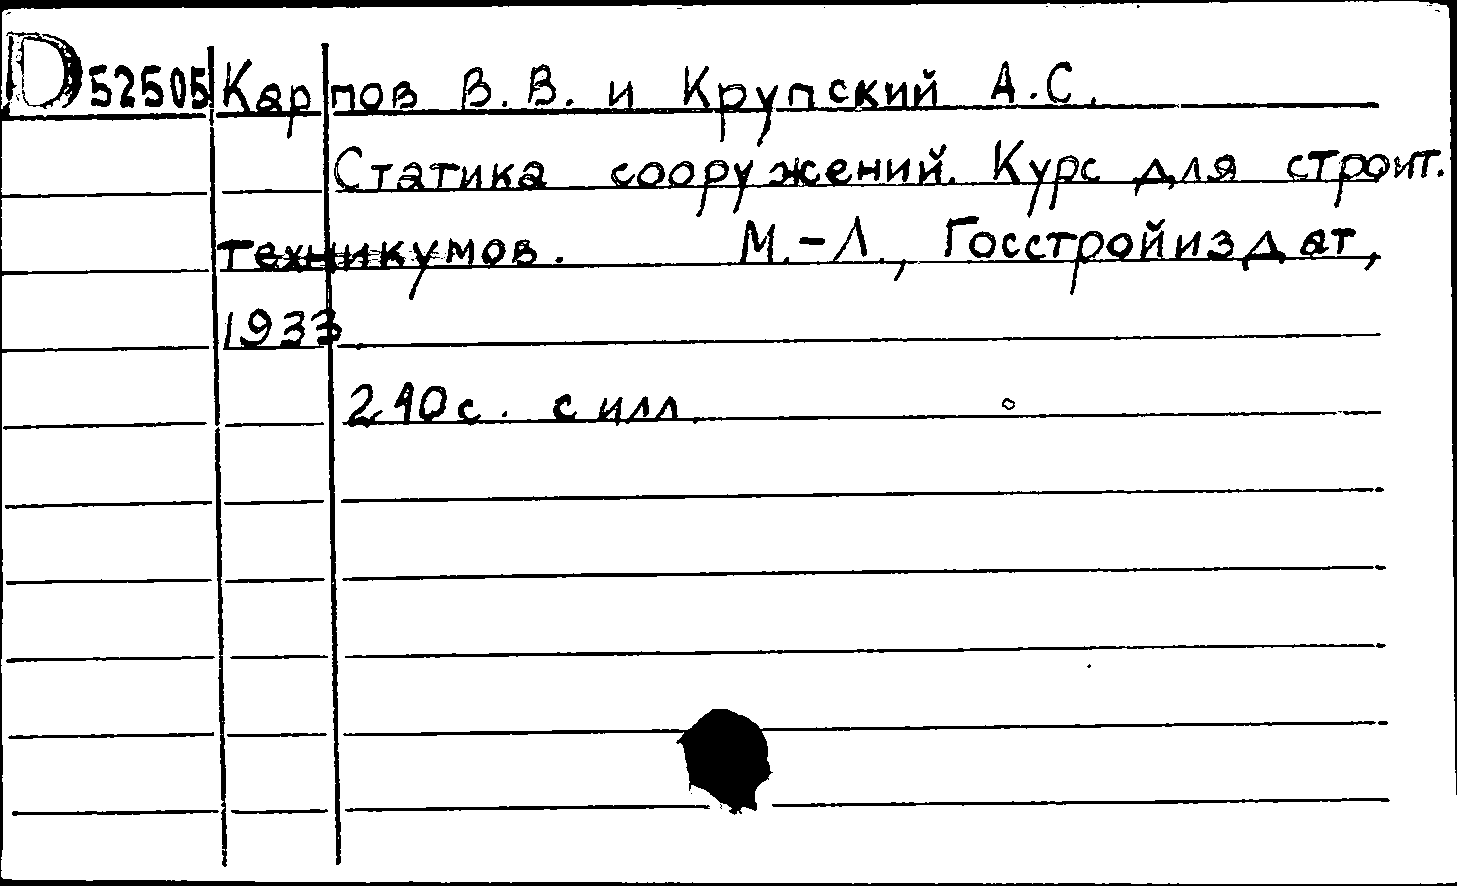 D 52505 Карпов В.В. и Крупский А.С.
Статика сооружений. Курс для строит.
техникумов. М.-Л., Госстройиздат,
1933.
240с. с илл.